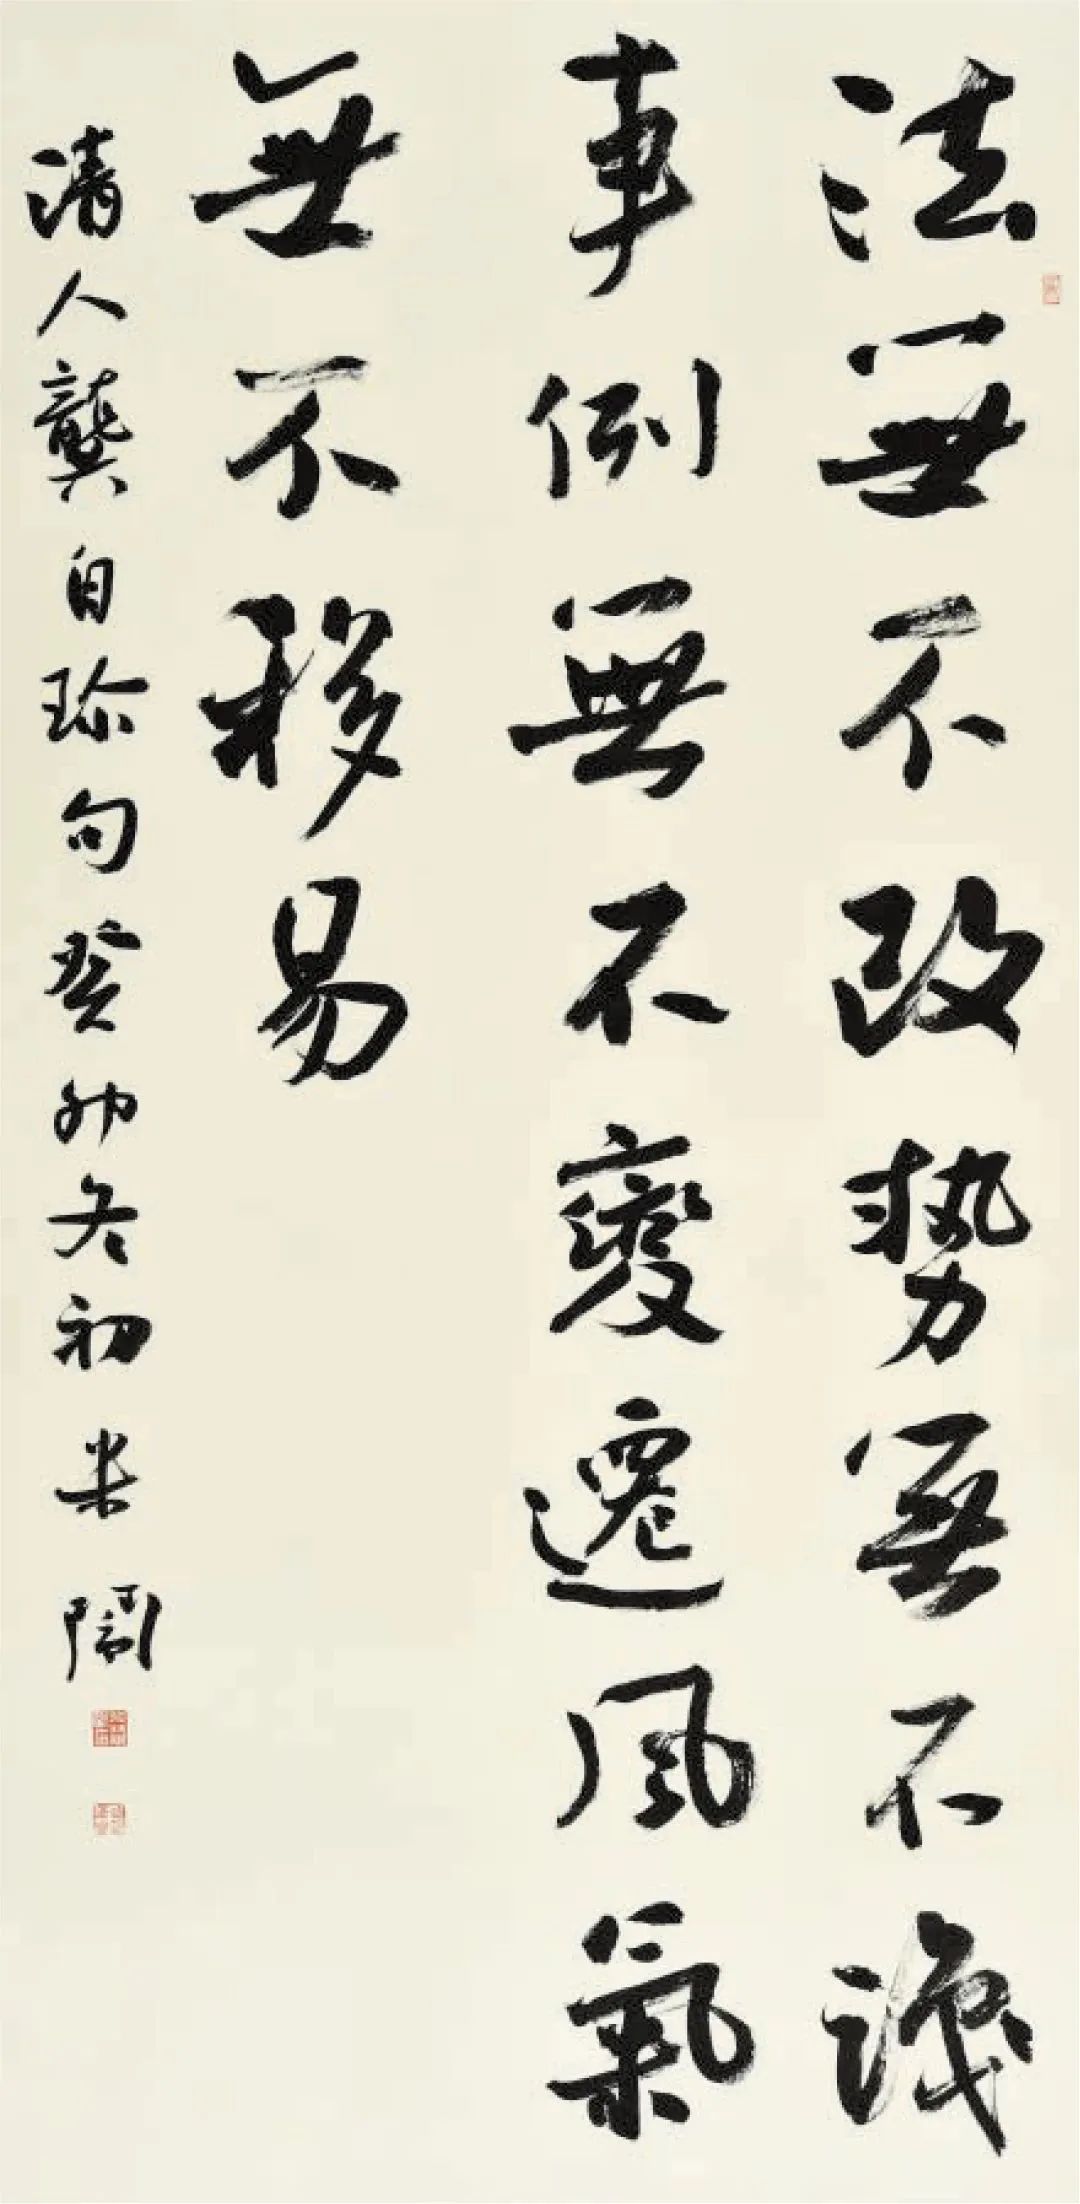 法無不改勢無不
事例無不變遷風氣
無不移易
清人龔自珍句癸卯冬初米鬧